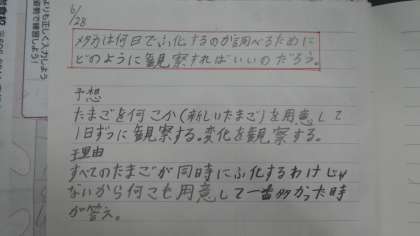 6/28
メダカは何日でふ化するのか調べるために
どのように観察すればいいのだろう。
予想
たまごを何こか(新しいたまご)を用意して
1日ずつに観察する。変化を観察する。
理由
すべてのたまごが同時にふ化するわけじゃ
ないから何こも用意して一番多かった時
が答え。